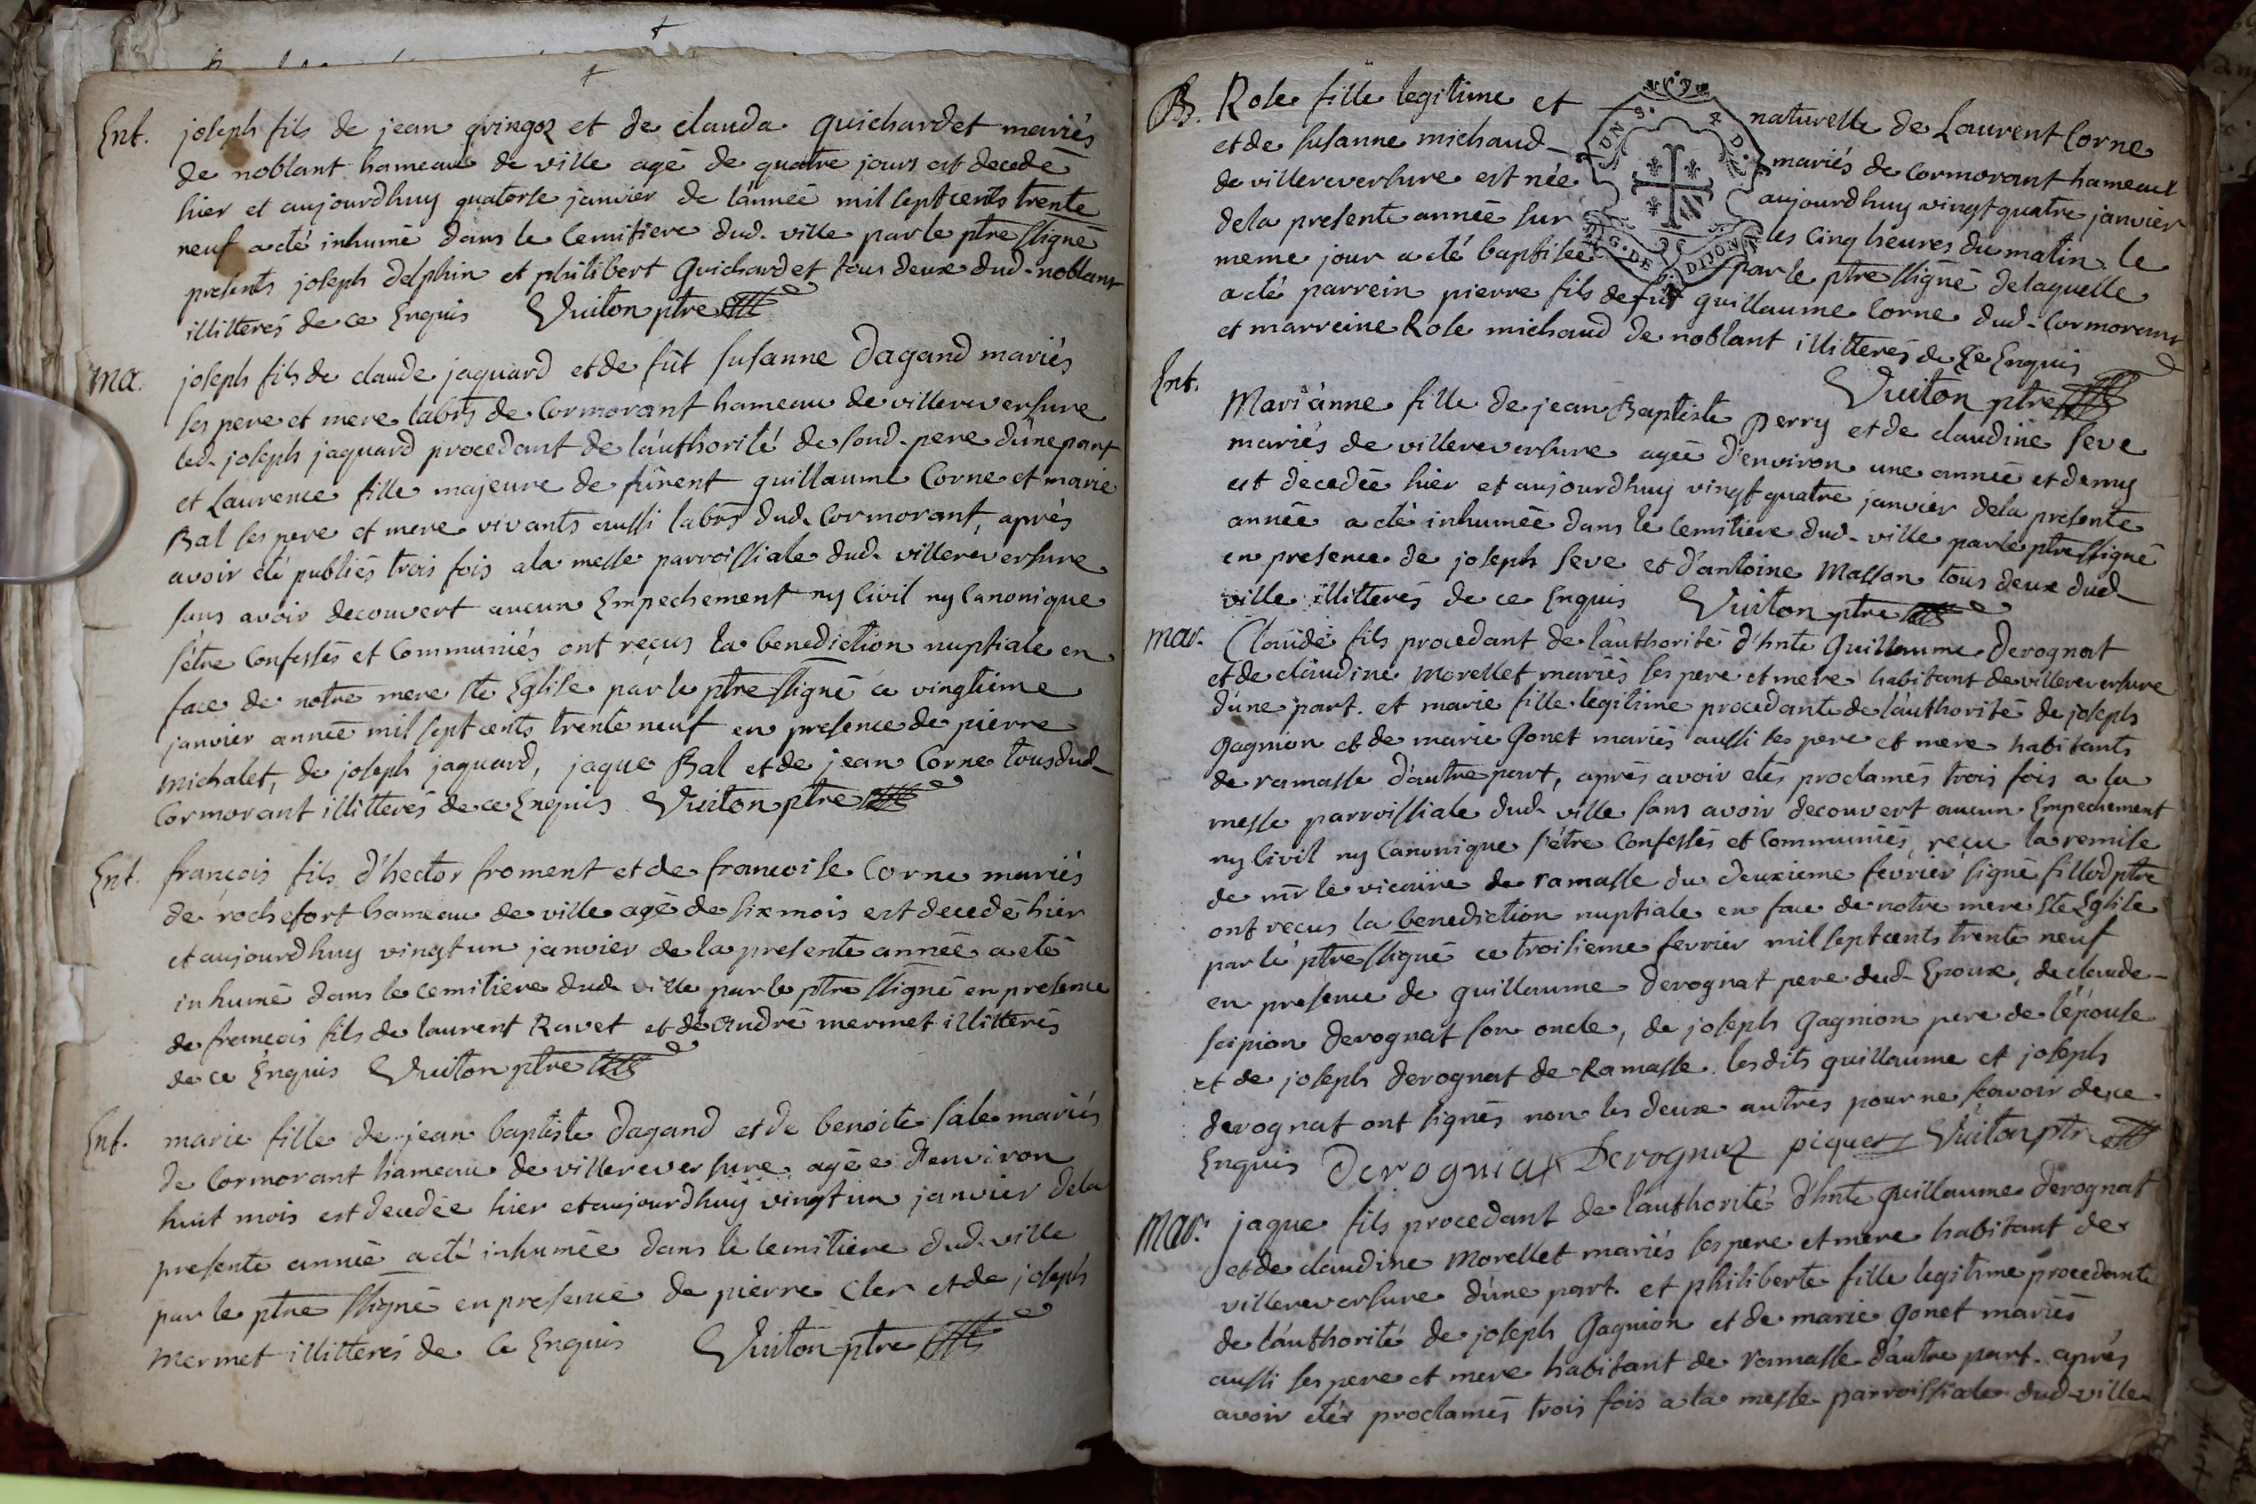 Ent. joseph fils de jean gringoz et de clauda guichardet mariés
de noblant hameau de ville agé de quatre jours est decedé
hier et aujourdhuy quatorse janvier de l'année mil sept cents trente
neuf a eté inhumé dans le cemitiere dud. ville par le ptre ssigné
presents joseph delphin et philibert guichardet tous deux dud. noblant
illitterés de ce Enquis Vuiton ptre
ma. joseph fils de claude jaquard et de fût susanne dagand mariés
ses pere et mere labrs de Cormorant hameau de villereversure
led. joseph jaquard procedant de l'authorité de sond. pere d'une part
et Laurence fille majeure de fûrent guillaume Corne et marie
Bal ses pere et mere vivants aussi labrs dud. Cormorant, aprés
avoir été publiés trois fois a la messe parroissiale dud. villereversure
sans avoir decouvert aucun Empechement ny Civil ny Canonique
s'étre Confessés et Communiés ont reçus la benediction nuptiale en
face de notre mere ste Eglise par le ptre ssigné ce vingtieme
janvier année mil sept cents trente neuf en presence de pierre
michalet, de joseph jaquard, jaque Bal et de jean Corne tous dud.
Cormorant illitterés de ce Enquis Vuiton ptre
Ent. françois fils d'hector froment et de francoise Corne mariés
de rochefort hameau de ville agé de six mois est decedé hier
et aujourdhuy vingt un janvier de la presente année a eté
inhumé dans le cemitiere dud. ville par le ptre ssigné en presence
de françois fils de laurent Ravet et de André mermet illitterés
de ce Enquis Vuiton ptre
Ent. marie fille de jean baptiste dagand et de benoite sale mariés
de Cormorant hameau de villereversure agée d'environ
huit mois est decedée hier et aujourdhuy vingt un janvier de la
presente année a eté inhumée dans le cemitiere dud. ville
par le ptre ssigné en presence de pierre Cler et de joseph
mermet illitterés de Ce Enquis Vuiton ptre
B. Rose fille legitime et naturelle de Laurent Corne
et de susanne michaud mariés de Cormorant hameau
de villereversure est née aujourdhuy vingt quatre janvier
de la presente année sur les cinq heures du matin le
meme jour a eté baptisée par le ptre ssigné de laquelle
a eté parrein pierre fils de fut guillaume Corne dud. Cormorant
et marreine Rose michaud de noblant illitterés de Ce Enquis
Vuiton ptre
G. DE DIJON
Ent. Marianne fille de jean Baptiste Perry et de claudine seve
mariés de villereversure agée d'environ une année et demy
est decedée hier et aujourdhuy vingt quatre janvier de la presente
année a eté inhumée dans le cemitiere dud. ville par le ptre ssigné
en presence de joseph seve et d'antoine Masson tous deux dud.
ville illitterés de ce Enquis Vuiton ptre
mar. Claude fils procedant de l'authorité d'hnte Guillaume derognat
et de claudine Morellet mariés ses pere et mere habitant de villereversure
d'une part. et marie fille legitime procedante de l'authorité de joseph
gagnion et de marie gonet mariés aussi ses pere et mere habitants
de ramasse d'autre part, aprés avoir etés proclamés trois fois a la
messe parroissiale dud. ville sans avoir decouvert aucun Empechement
ny Civil ny Canonique s'étre Confessés et Communiés, reçu la remise
de mr le vicaire de ramasse du deuxieme fevrier signé fillod ptre
ont reçus la benediction nuptiale en face de notre mere ste Eglise
par le ptre ssigné ce troisieme fevrier mil sept cents trente neuf
en presence de guillaume derognat pere dud. Epoux, de claude
scipion derognat son oncle, de joseph gagnion pere de l'épouse
et de joseph derognat de Ramasse. lesdits guillaume et joseph
derognat ont signés non les deux autres pour ne scavoir de ce
Enquis Derogniat Derognaz piquet Vuiton ptre
mar. jaque fils procedant de l'authorité d'hnte guillaume derognat
et de claudine Morellet mariés ses pere et mere habitant de
villereversure d'une part. et philiberte fille legitime procedante
de l'authorité de joseph gagnion et de marie gonet mariés
aussi ses pere et mere habitant de ramasse d'autre part. aprés
avoir etés proclamés trois fois a la messe parroissiale dud. ville